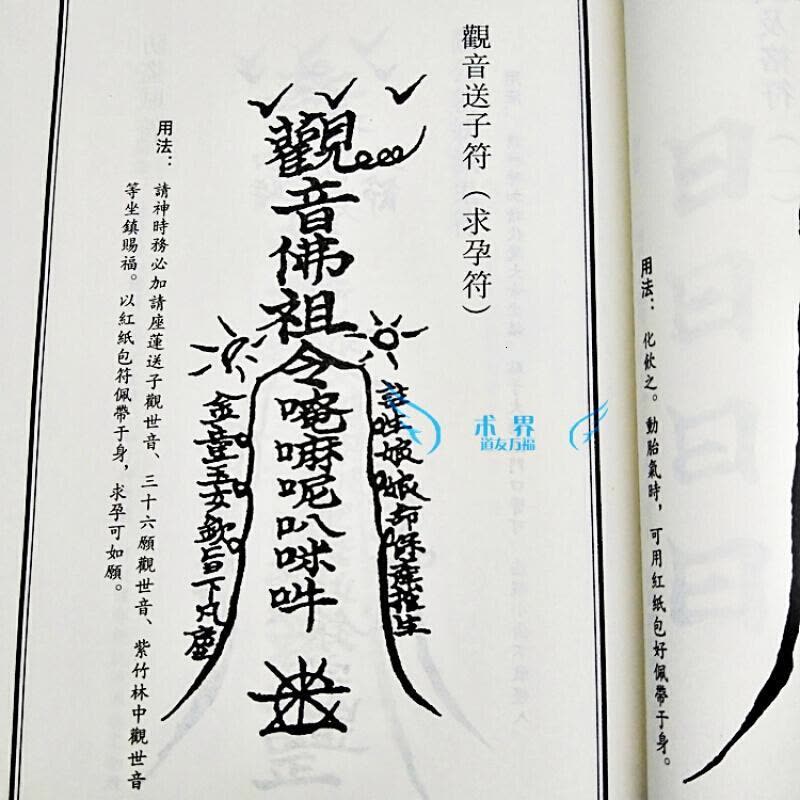 觀音送子符（求孕符）
觀音佛祖令唵嘛呢叭咪吽
註生娘娘
金童玉女欽旨下凡塵
用法：請神時務必加請座蓮送子觀世音、三十六願觀世音、紫竹林中觀世音
等坐鎮賜福。以紅紙包符佩帶于身，求孕可如願。
术界
道友万福
及
符（
用法：化飲之。動胎氣時，可用紅紙包好佩帶于身。